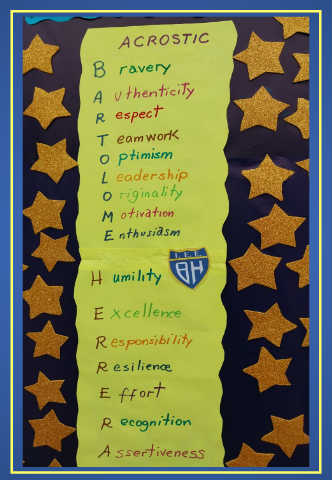 ACROSTIC
Bravery
Authenticity
Respect
Teamwork
Optimism
Leadership
Originality
Motivation
Enthusiasm
BH
Humility
Excellence
Responsibility
Resilience
Effort
Recognition
Assertiveness